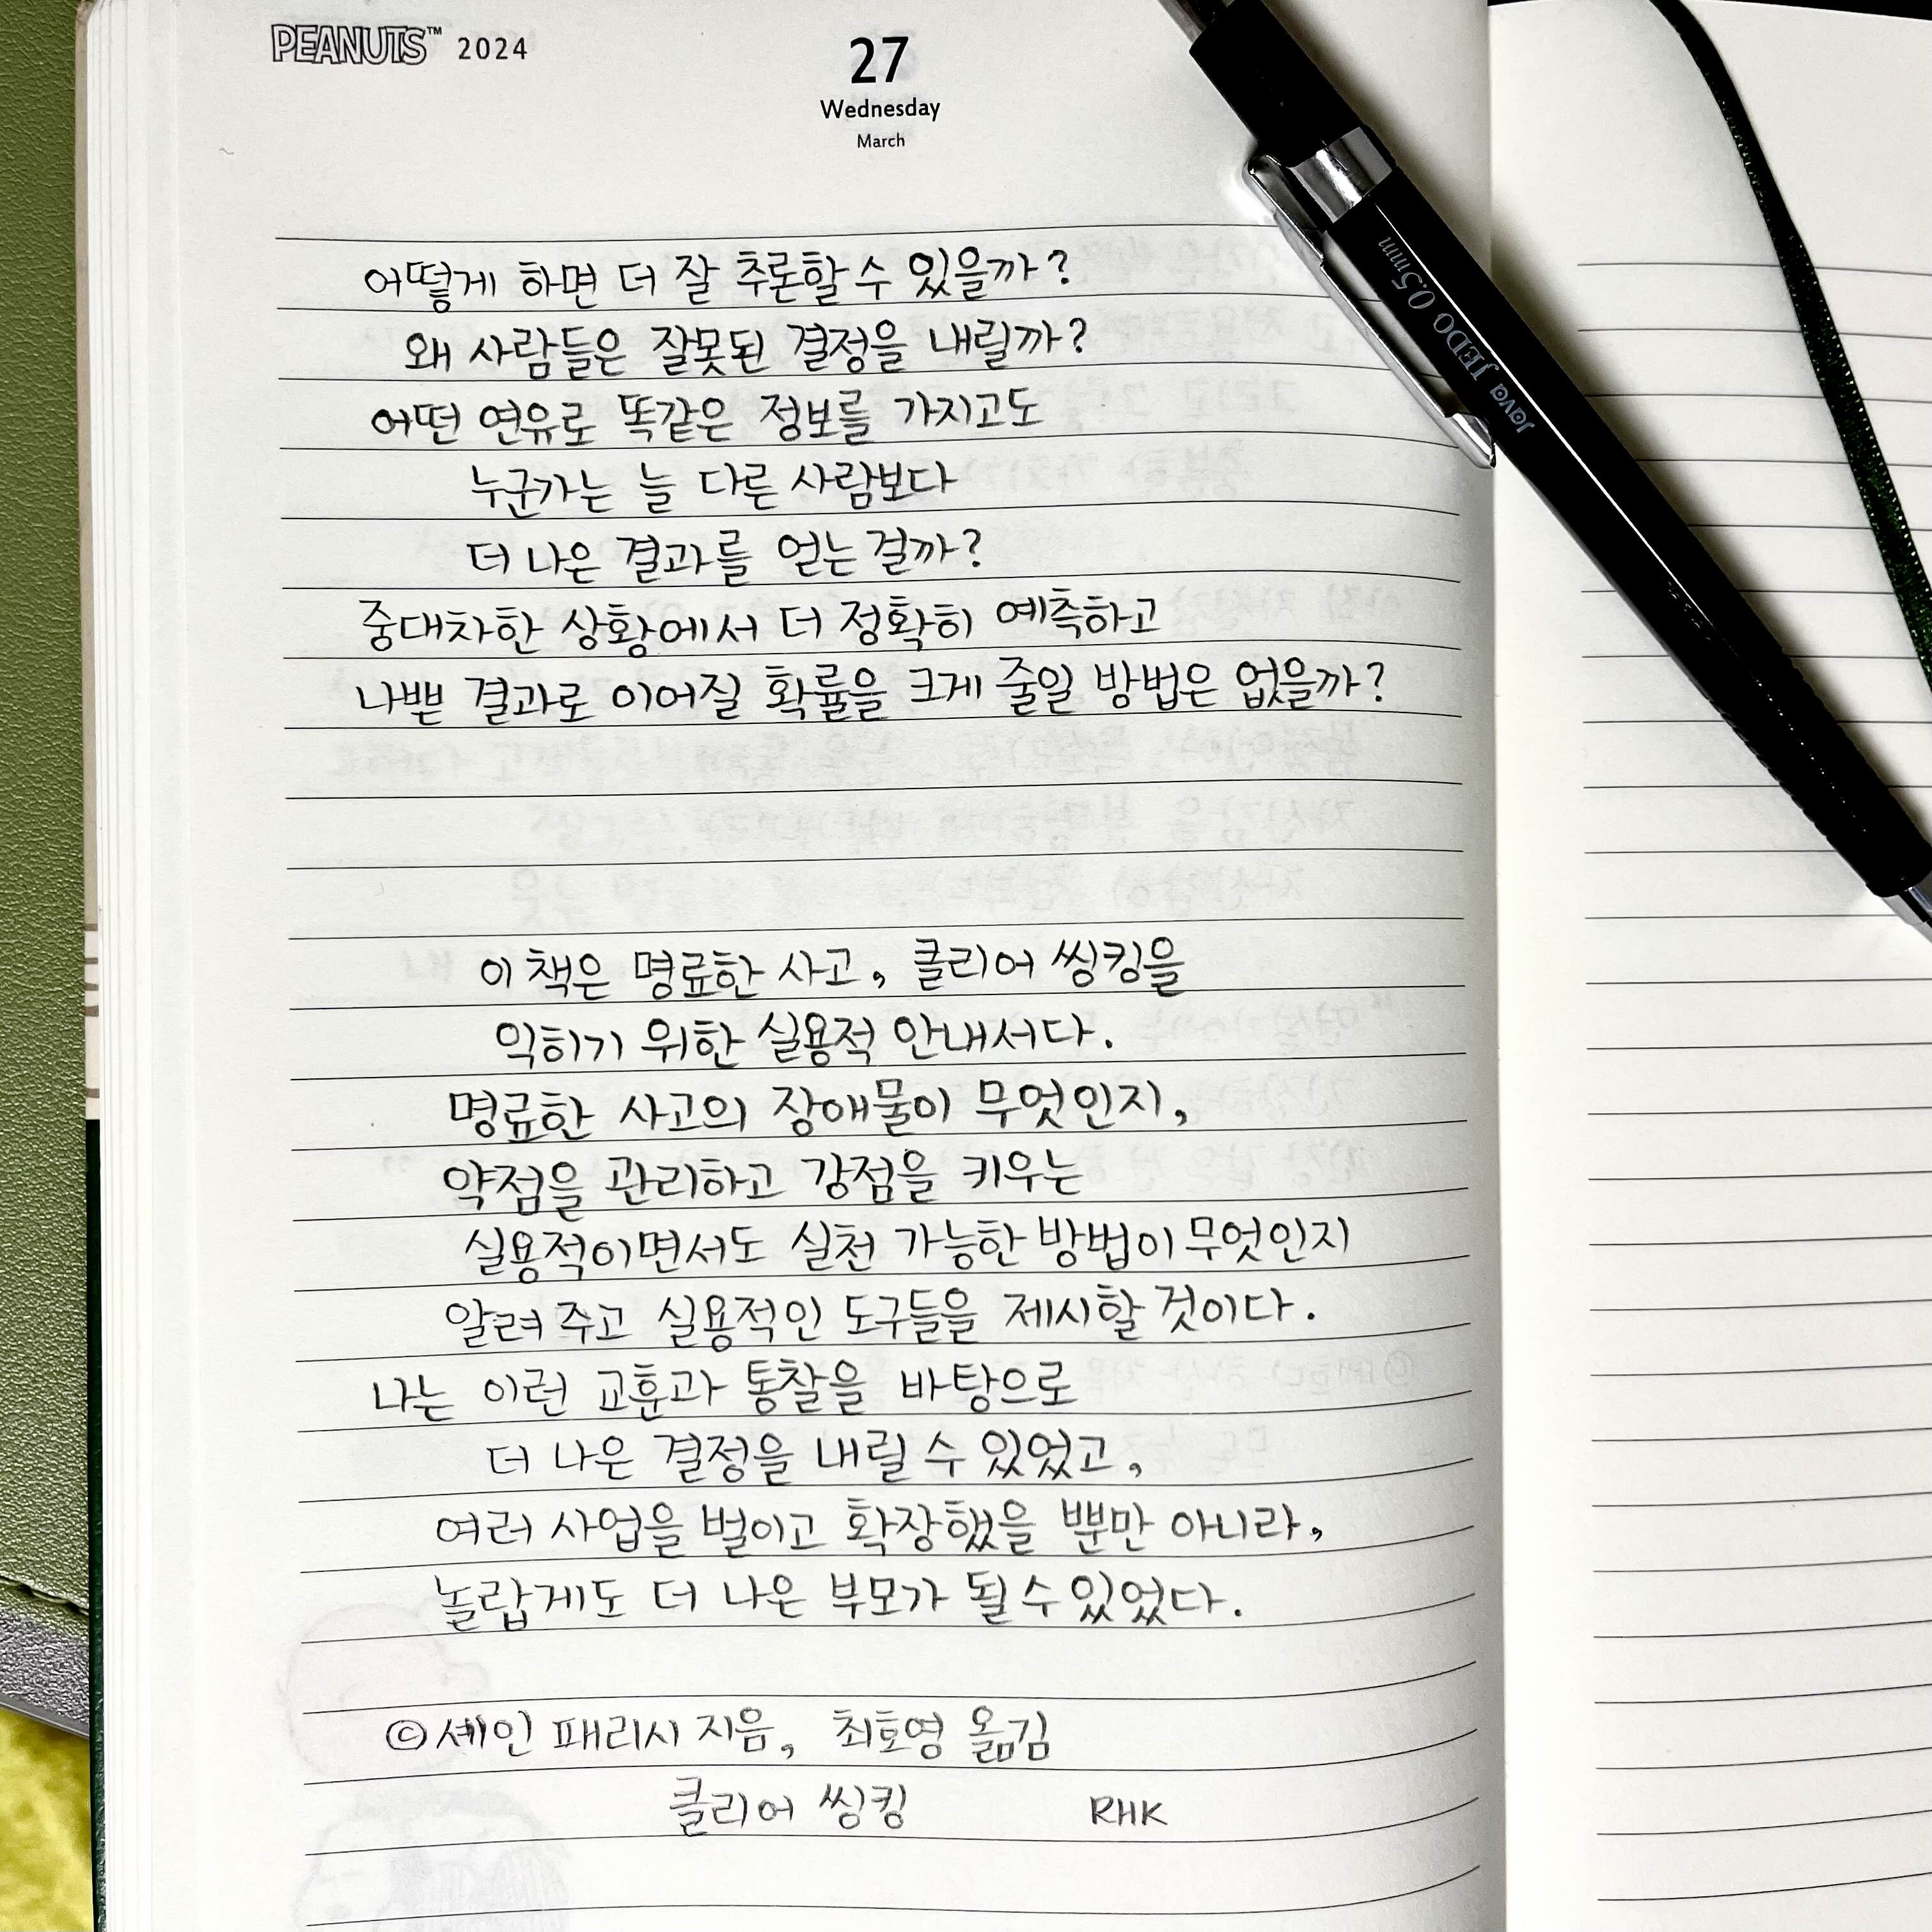 PEANUTS™ 2024
27
Wednesday
March
어떻게 하면 더 잘 추론할 수 있을까?
왜 사람들은 잘못된 결정을 내릴까?
어떤 연유로 똑같은 정보를 가지고도
누군가는 늘 다른 사람보다
더 나은 결과를 얻는 걸까?
중대차한 상황에서 더 정확히 예측하고
나쁜 결과로 이어질 확률을 크게 줄일 방법은 없을까?
이 책은 명료한 사고, 클리어 씽킹을
익히기 위한 실용적 안내서다.
명료한 사고의 장애물이 무엇인지,
약점을 관리하고 강점을 키우는
실용적이면서도 실천 가능한 방법이 무엇인지
알려 주고 실용적인 도구들을 제시할 것이다.
나는 이런 교훈과 통찰을 바탕으로
더 나은 결정을 내릴 수 있었고,
여러 사업을 벌이고 확장했을 뿐만 아니라,
놀랍게도 더 나은 부모가 될 수 있었다.
©셰인 패리시 지음, 최호영 옮김
클리어 씽킹 RHK
Java JEDO 0.5mm